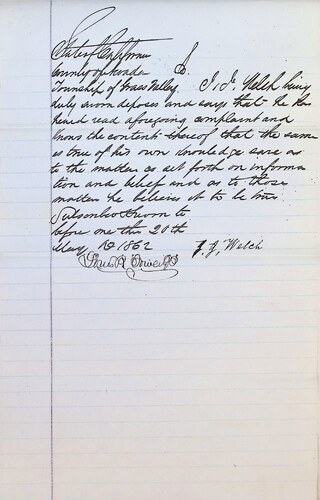 State of California
County of Nevada } ss.
Township of Grass Valley J. J. Welch being
duly sworn deposes and says that he has
heard read aforegoing complaint and
knows the contents thereof that the same
is true of his own knowledge save as
to the matters as set forth on informa
tion and belief and as to those
matters he believes it to be true
Subscribed & sworn to
before me this 20th
May 1862 J. J. Welch